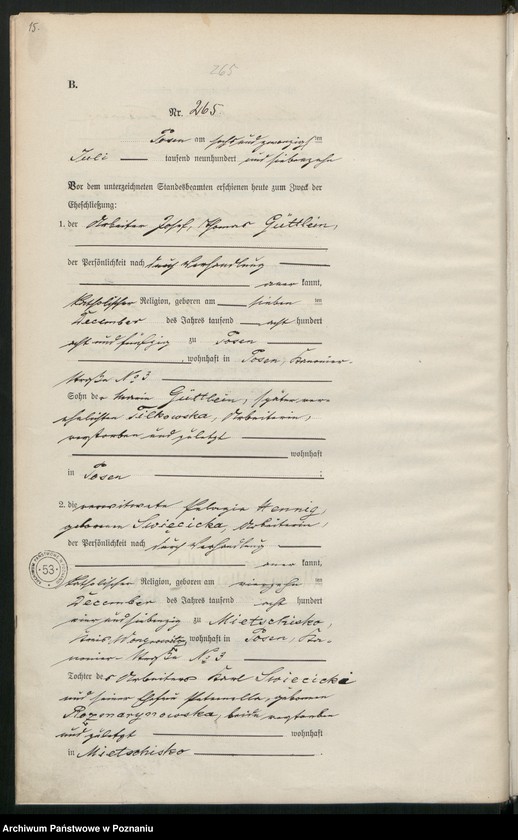 15.
265
B.
Nr. 265
Posen am sechsundzwanzigsten
Juli tausend neunhundert und siebenzehn
Vor dem unterzeichneten Standesbeamten erschienen heute zum Zweck der
Eheschließung:
1. der Arbeiter Josef, Thomas Güttlein,
der Persönlichkeit nach durch Verhandlung
aner kannt,
katholischer Religion, geboren am sieben ten
December des Jahres tausend acht hundert
acht und fünfzig zu Posen
, wohnhaft in Posen, Kanonier-
straße No 3
Sohn der Maria Güttlein, später ver-
ehelichten Filkowska, Arbeiterin,
verstorben und zuletzt
wohnhaft
in Posen :
2. die verwitwete Pelagia Hennig,
geborene Swięcicka, Arbeiterin,
der Persönlichkeit nach durch Verhandlung
aner kannt,
katholischer Religion, geboren am vierzehn ten
December des Jahres tausend acht hundert
vier und siebenzig zu Mietschisko,
Kreis Wongrowitz, wohnhaft in Posen, Ka-
nonier Straße No 3
Tochter des Arbeiters Karl Swiecicki
und seiner Ehefrau Petronella, geborenen
beide verstorben
und zuletzt wohnhaft
in Mietschisko .
53
Archiwum Państwowe w Poznaniu
Archiwum Państwowe w Poznaniu